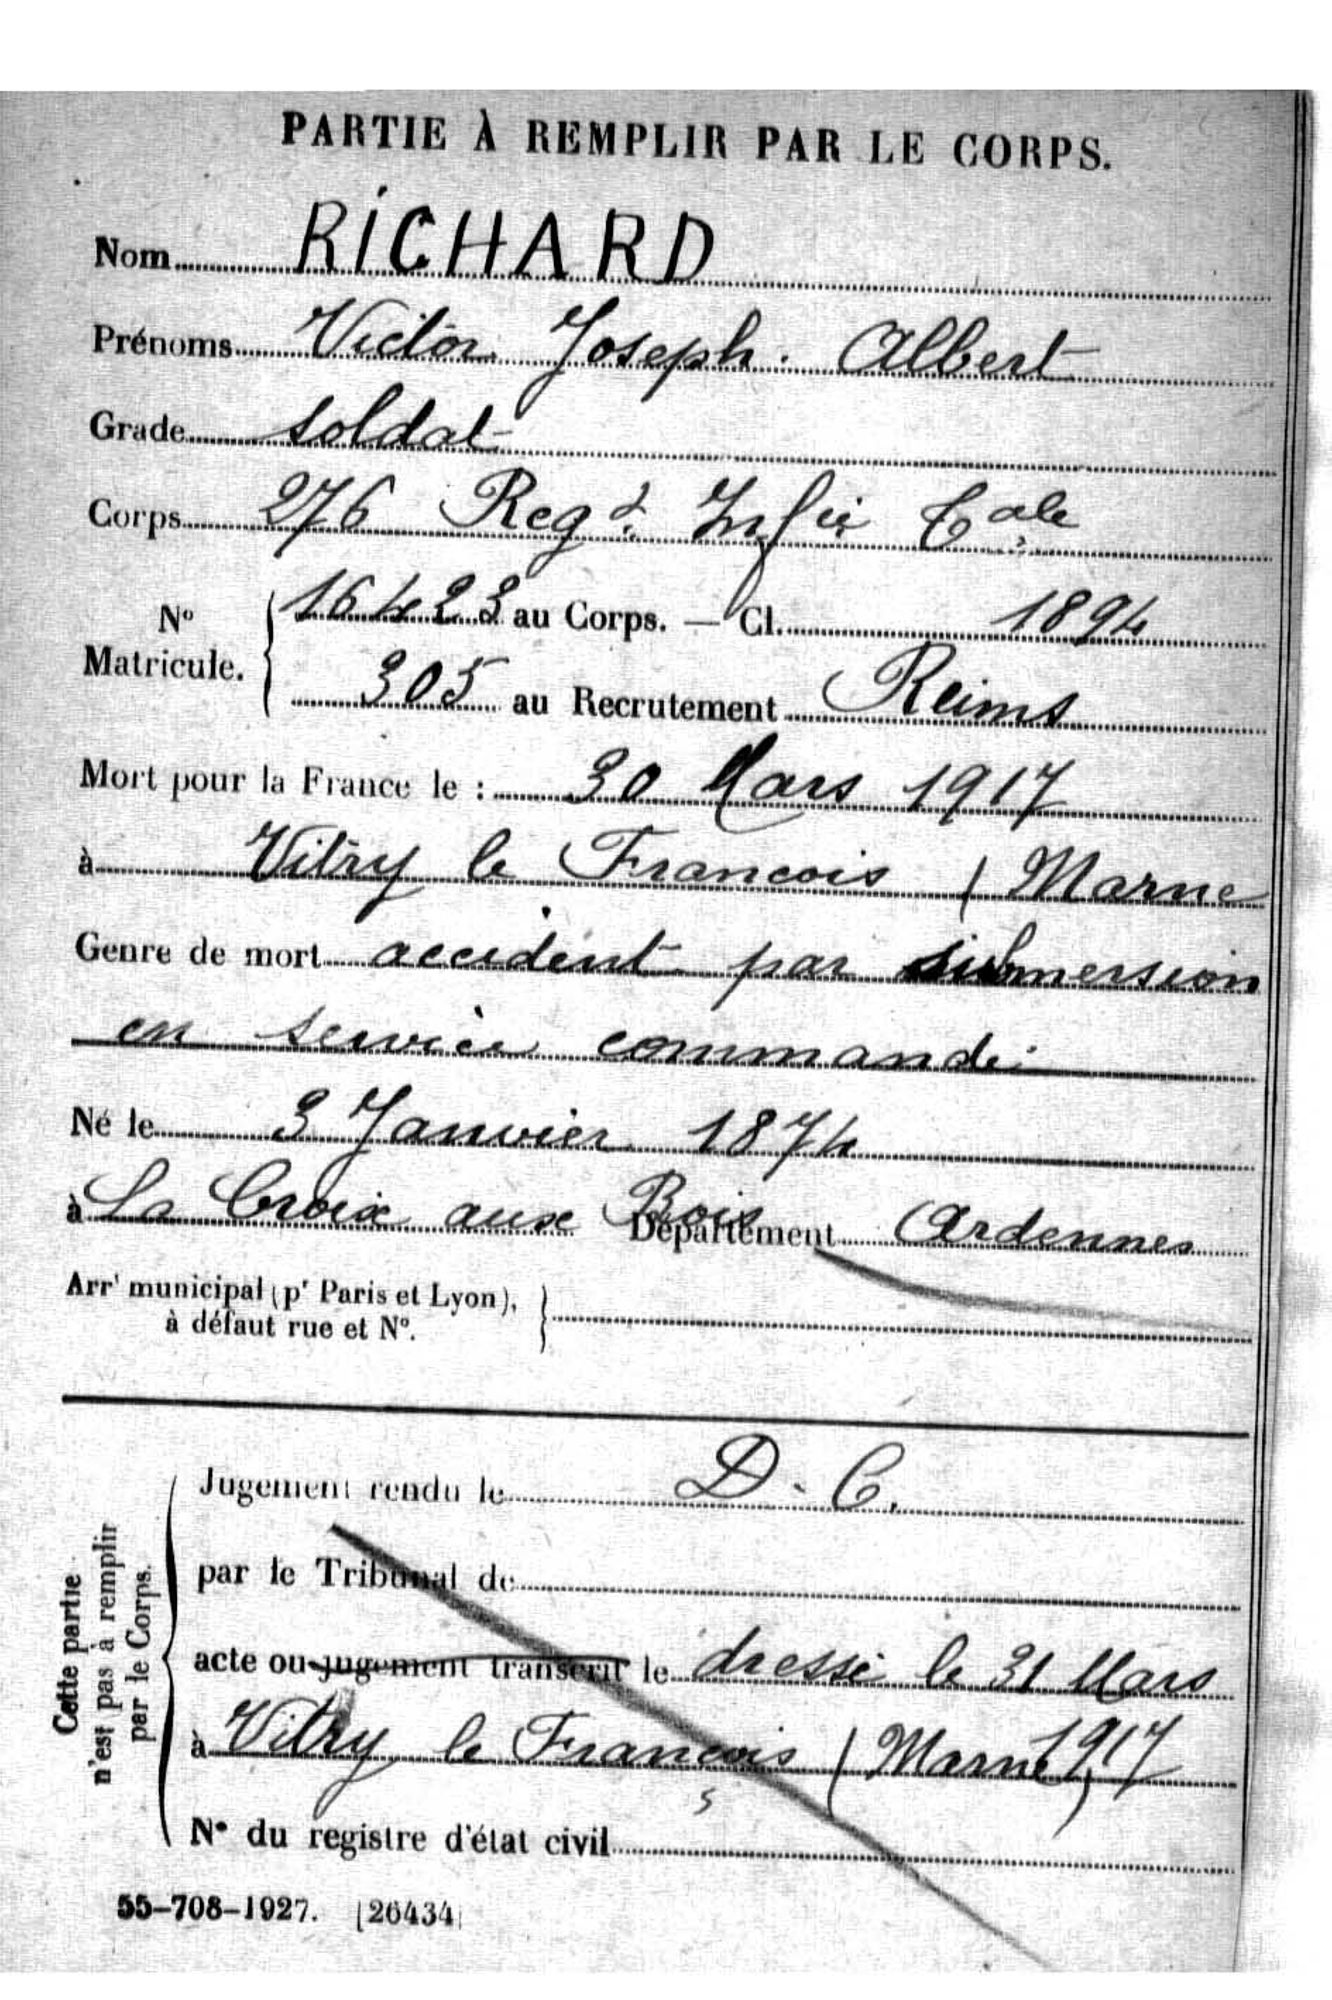 PARTIE À REMPLIR PAR LE CORPS.
Nom RICHARD
Prénoms Victor Joseph. Albert
Grade soldat
Corps 276 Regt. Infie Cale
No Matricule. { 16423 au Corps. — Cl. 1894
305 au Recrutement Reims
Mort pour la France le : 30 Mars 1917
à Vitry le Francois ( Marne
Genre de mort accident par submersion
en service commandé.
Né le 3 Janvier 1874
à La Croix aux Bois Département Ardennes
Arrt municipal (pr Paris et Lyon), }
à défaut rue et No.
Cette partie
n'est pas à remplir
par le Corps.
Jugement rendu le D. C.
par le Tribunal de
acte ou jugement transcrit le dressé le 31 Mars
1917
à Vitry le François ( Marne )
No du registre d'état civil
55-708-1927. [26434]